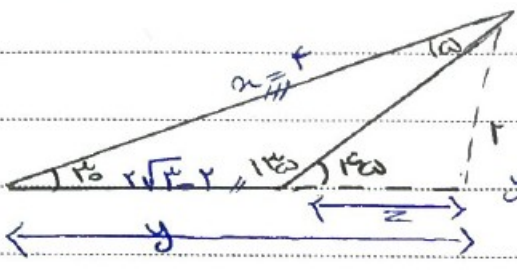 ۱۵
x = ۴
۲
۳۰
۲√۳-۲
۱۳۵
۴۵
z
y